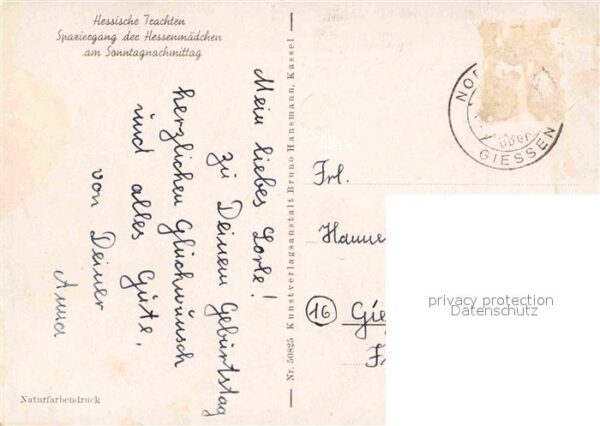 Hessische Trachten
Spaziergang der Hessenmädchen
am Sonntagnachmittag
Mein liebes Lorle!
zu Deinem Geburtstag
herzlichen Glückwunsch
und alles Gute,
von Deiner
Anna
Naturfarbendruck
Nr. 50825 Kunstverlagsanstalt Bruno Hansmann, Kassel
über
GIESSEN
Frl.
Hanne
(16) Gie
privacy protection
Datenschutz